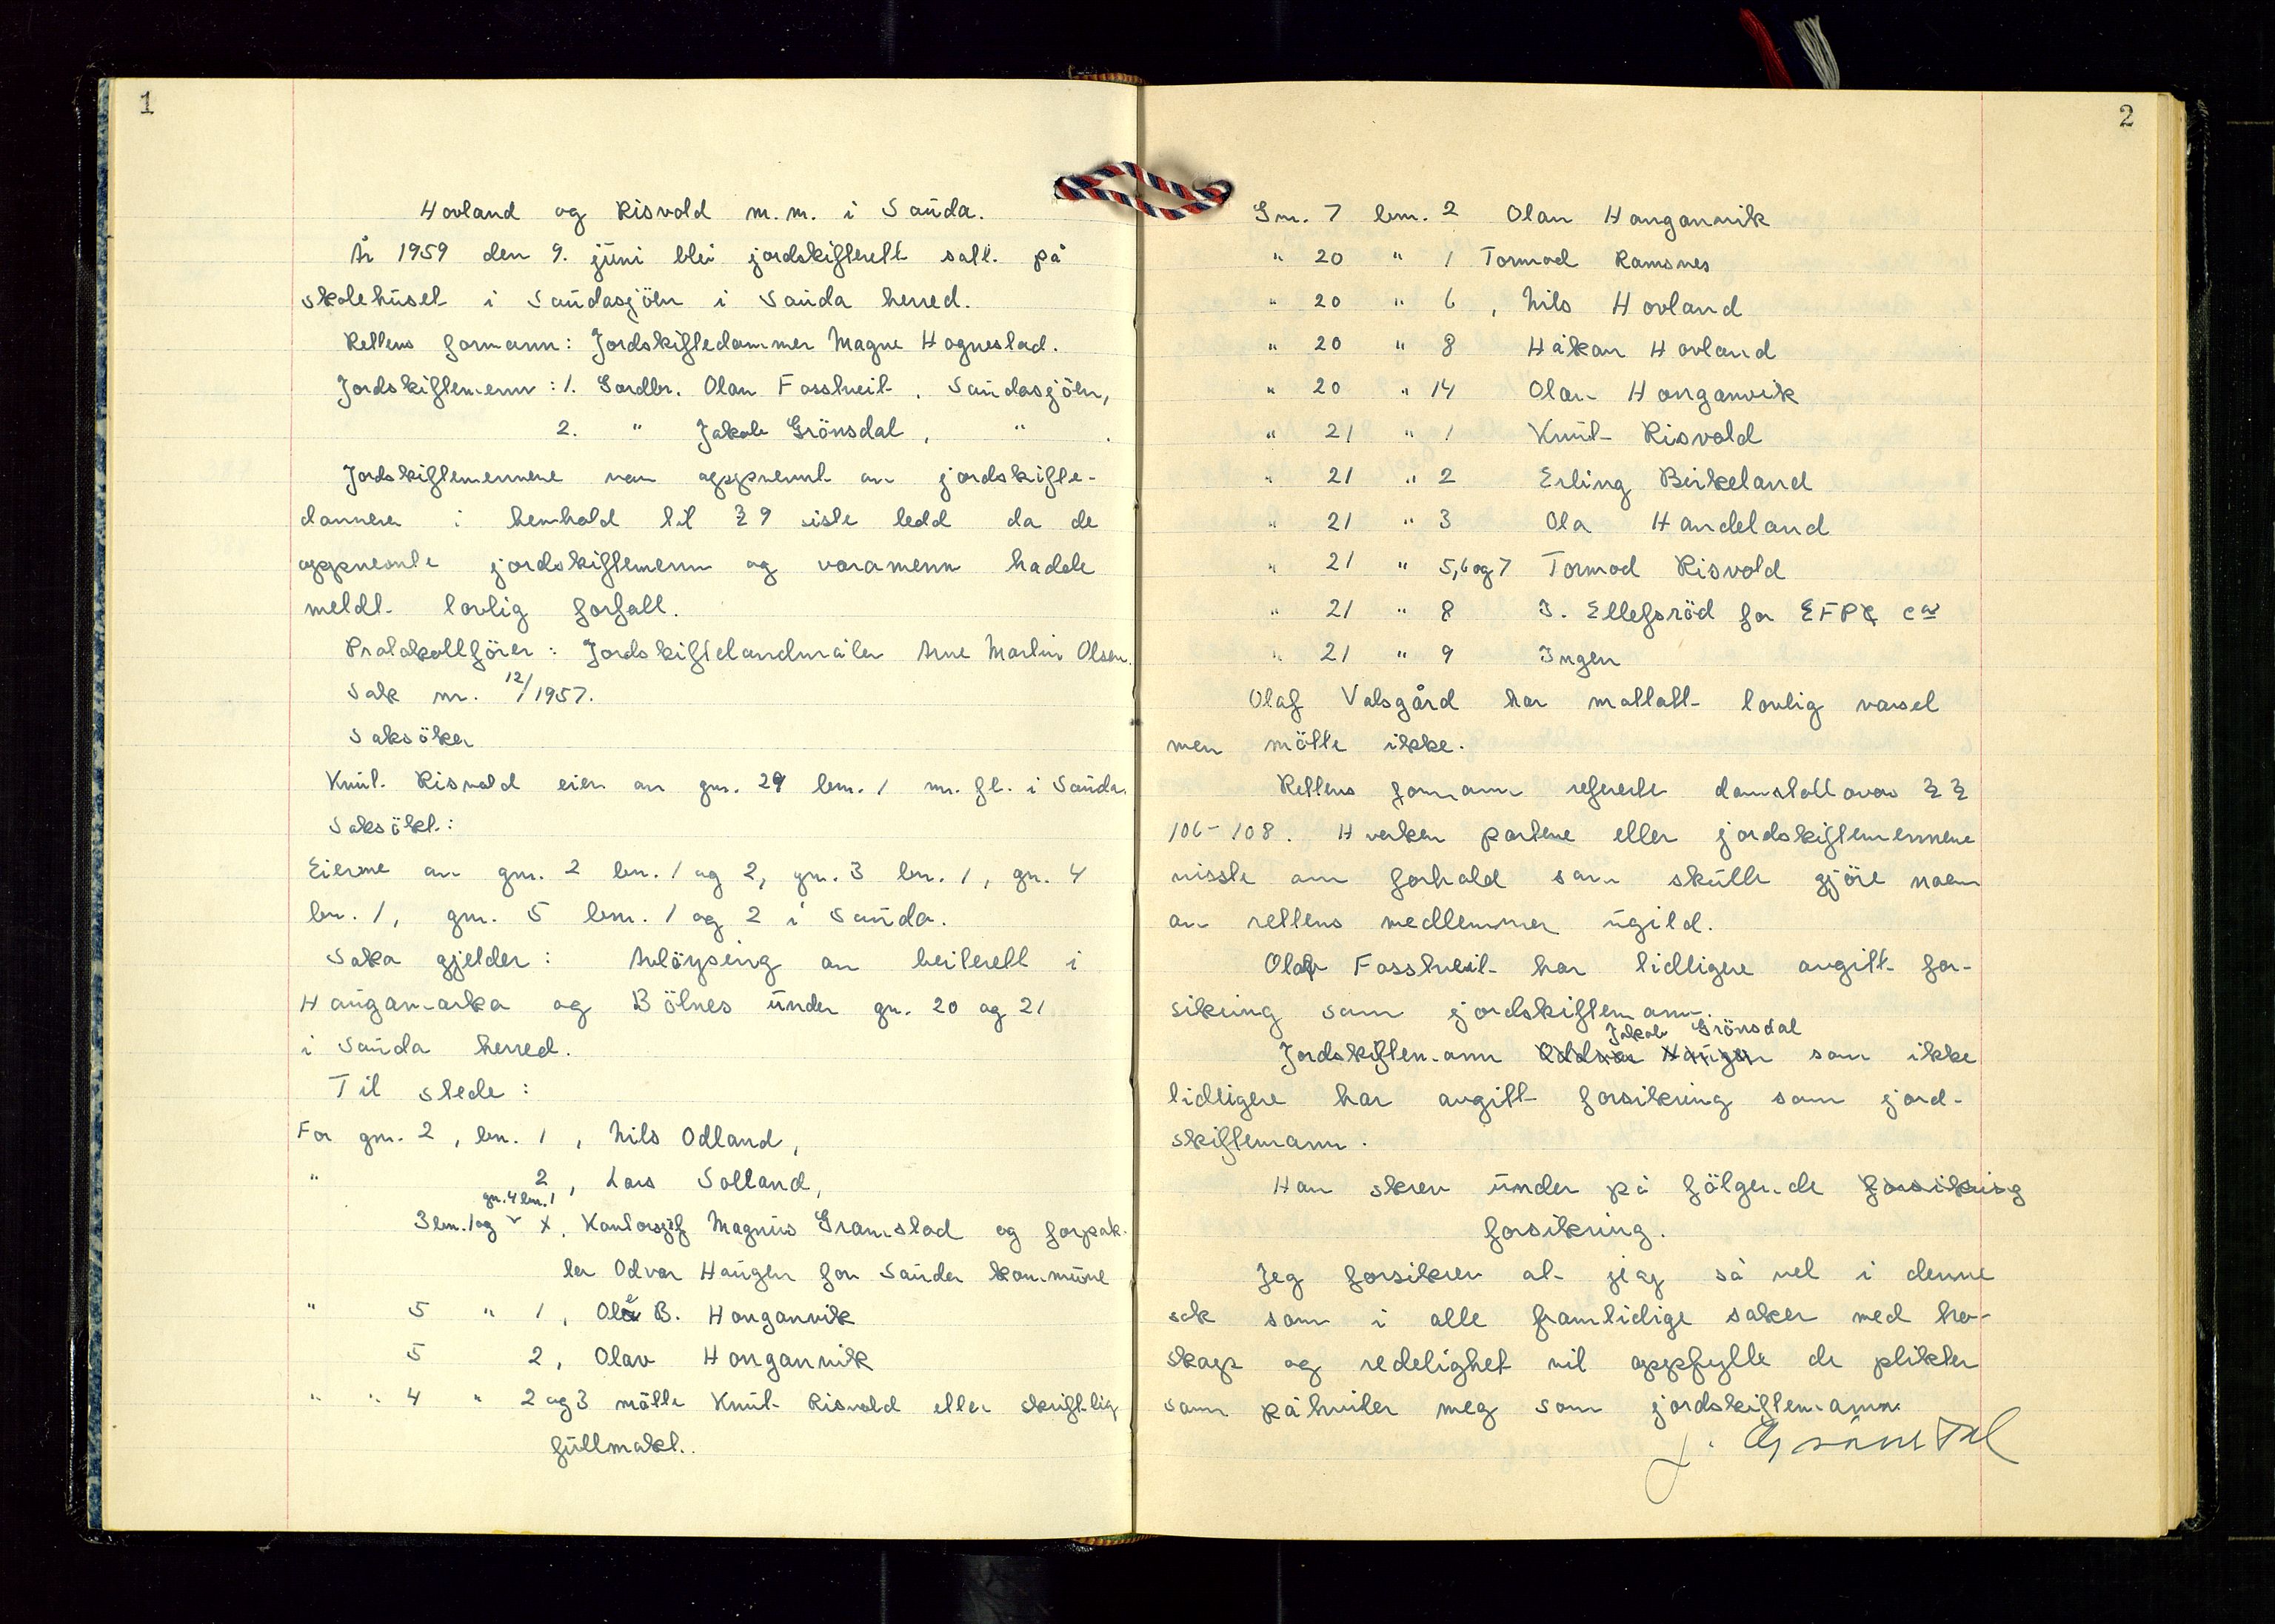 1
Hovland og Risvold m.m. i Saŭda.
År 1959 den 9. jŭni blei jordskifterett satt på
skolehŭset i Saŭdasjöen i Saŭda herred.
Rettens formann: Jordskiftedommer Magne Hognestad.
Jordskiftemenn: 1. Gardbr. Olav Fosstveit, Saŭdasjöen,
2. " Jakob Grönsdal, " .
Jordskiftemennene var oppnevnt av jordskifte-
dommer i henhold til § 9 siste ledd da de
oppnevnte jordskiftemenn og varamenn hadde
meldt lovlig forfall.
Protokollförer: Jordskiftelandmåler Arne Martin Olsen.
Sak nr. 12/1957.
Saksöker
Knŭt Risvold eier av gnr. 21 bnr. 1 m. fl. i Saŭda.
Saksökt:
Eierne av gnr. 2 bnr. 1 og 2, gnr. 3 bnr. 1, gnr. 4
bnr. 1, gnr. 5 bnr. 1 og 2 i Saŭda.
Saka gjelder: Avlöysing av beiterett i
Haŭgamarka og Bölnes ŭnder gnr. 20 og 21
i Saŭda herred.
Til stede:
For gnr. 2, bnr. 1, Nils Odland,
" 2, Lars Solland,
gnr. 4 bnr. 1
3 bnr. 1 og x, Kontorsjef Magnŭs Gramstad og forpak-
ter Odvar Haŭgen for Saŭda kommŭne
" 5 " 1, Ole B. Honganvik
5 2, Olav Honganvik
" " 4 " 2 og 3 mötte Knŭt Risvold etter skriftlig
fŭllmakt.
2
Gnr. 7 bnr. 2 Olav Honganvik
" 20 " 1 Tormod Ramsnes
" 20 " 6, Nils Hovland
" 20 " 8 Håkon Hovland
" 20 " 14 Olav Honganvik
" 21 " 1 Knŭt Risvold
" 21 " 2 Erling Birkeland
" 21 " 3 Ola Handeland
" 21 " 5, 6 og 7 Tormod Risvold
" 21 " 8 I. Ellefsröd for EFP& co
" 21 " 9 Ingen
Olaf Valsgård har mottatt lovlig varsel
men mötte ikke.
Rettens formann refererte domstolloven §§
106-108. Hverken partene eller jordskiftemennene
visste om forhold som skŭlle gjöre noen
av rettens medlemmer ŭgild.
Olav Fosstveit har tidligere avgitt for-
sikring som jordskiftemann.
Jakob Grönsdal
Jordskiftemann Oddvar Haŭgen som ikke
tidligere har avgitt forsikring som jord-
skiftemann.
Han skrev ŭnder på fölgende forsikring
forsikring.
Jeg forsikrer at jeg så vel i denne
sak som i alle framtidige saker med tro-
skap og redelighet vil oppfylle de plikter
som påhviler meg som jordskiftemann.
J. Grönsdal